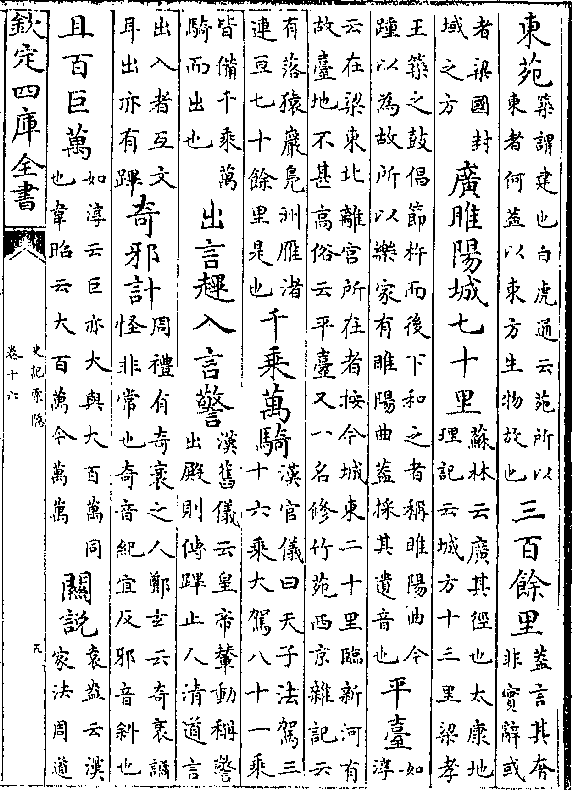 東苑築謂建也白虎通云苑所以東者何蓋以東方生物故也三百餘里蓋言其奢非實辭或
者梁國封域之方廣睢陽城七十里蘇林云廣其徑也太康地理記云城方十三里梁孝
王築之鼓倡節杵而後下和之者稱睢陽曲今踵以為故所以樂家有睢陽曲蓋採其遺音也平臺如淳
云在梁東北離宮所在者按今城東二十里臨新河有故臺地不甚高俗云平臺又一名修竹苑西京雜記云
有落猿巖鳧洲雁渚連豆七十餘里是也千乘萬騎漢官儀曰天子法駕三十六乘大駕八十一乘
皆備千乘萬騎而出也出言趯入言警漢舊儀云皇帝輦動稱警出殿則傳蹕止人清道言
出入者互文耳出亦有蹕奇邪計周禮有奇衺之人鄭玄云奇衺譎怪非常也奇音紀宜反邪音斜也
且百巨萬如淳云巨亦大與大百萬同也韋昭云大百萬今萬萬關説袁盎云漢家法周道
欽定四庫全書
史記索隱
卷十六
九